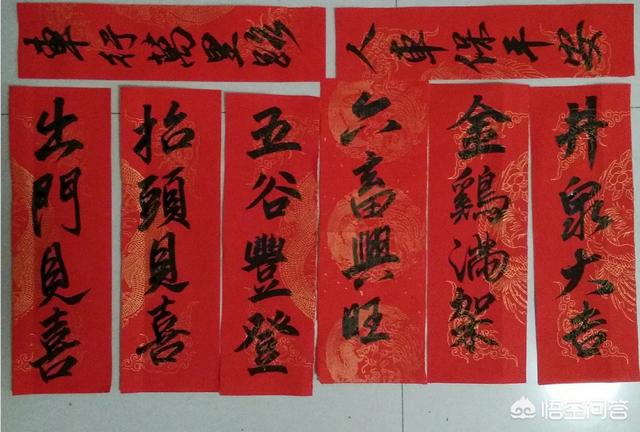 車行萬里路
人車保平安
出門見喜
抬頭見喜
五谷豐登
六畜興旺
金鷄滿架
井泉大吉
悟空问答